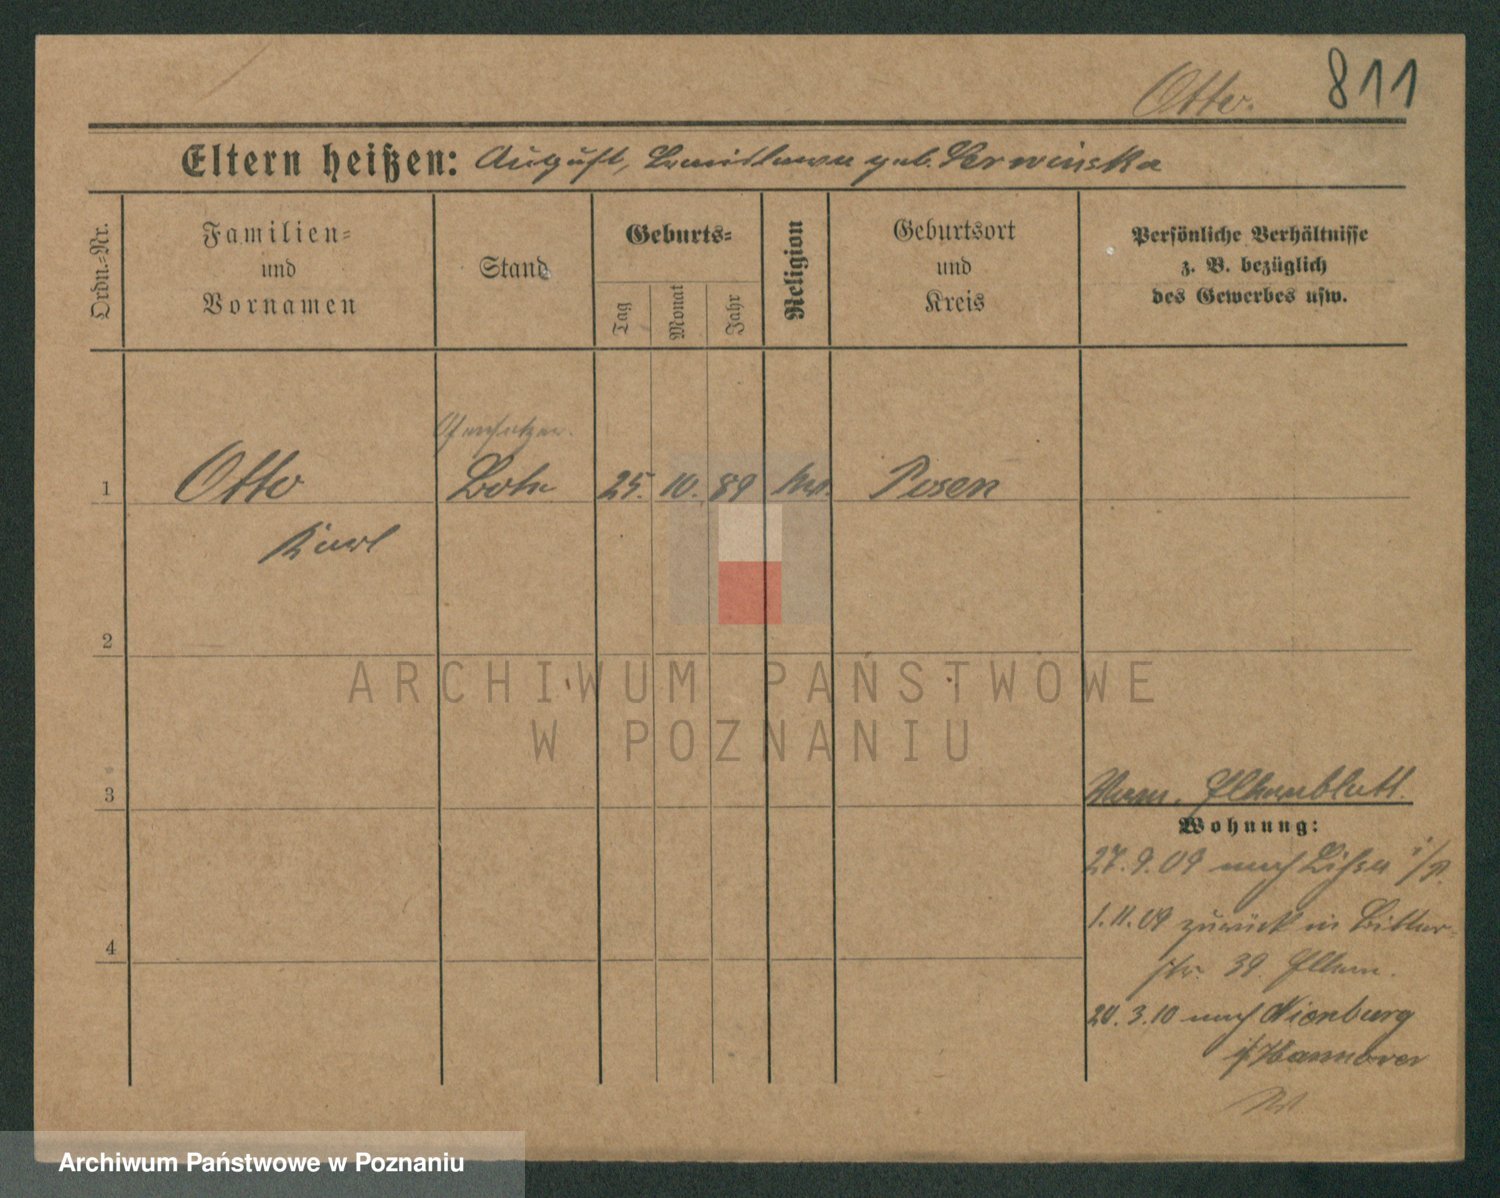 Otto. 811
Eltern heißen: August, Bronislawa geb. Serwinska
Ordn.-Nr.
Familien-
und
Vornamen
Stand
Geburts-
Tag
Monat
Jahr
Religion
Geburtsort
und
Kreis
Persönliche Verhältnisse
z. B. bezüglich
des Gewerbes usw.
Ofensetzer.
1 Otto 25. 10. 89 Posen
Karl
2
3
Elternblatt.
Wohnung:
27. 9. 09 nach Lissa i/P.
4
1. 11. 09 zurück in Bitter-
str. 39. Eltern.
20. 3. 10 nach Nienburg
i/Hannover
ARCHIWUM PAŃSTWOWE
W POZNANIU
Archiwum Państwowe w Poznaniu